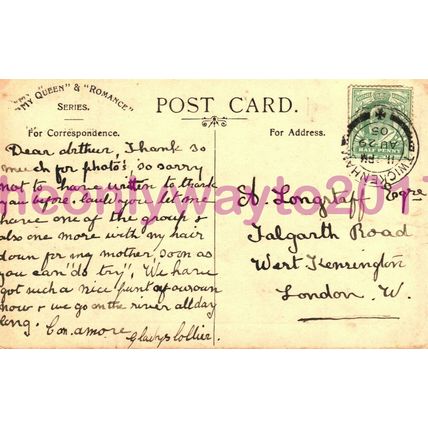 "MY QUEEN" & "ROMANCE"
SERIES.
POST CARD.
For Correspondence.
For Address.
HALF PENNY
TWICKENHAM
11.PM
AU 29
05
Dear Arthur, Thank so
much for photo's, so sorry
not to have written to thank
you before. Could you let me
have one of the group &
also one more with my hair
down for my mother, soon as
you can "do try", We have
got such a nice punt of our own
now & we go on the river all day
long. Con. amore
Gladys Collier.
A. Longstaff Esqre
Talgarth Road
West Kensington
London. W.
theonlywayto2017